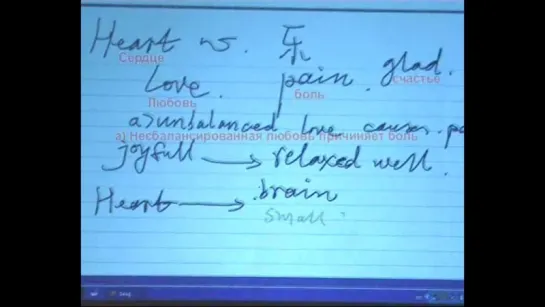 Heart vs. 乐
Сердце
Love. pain. glad.
Любовь боль счастье
a> unbalanced love causes. pa
а) Несбалансированная любовь причиняет боль
joyfull → relaxed well.
Heart → brain
small